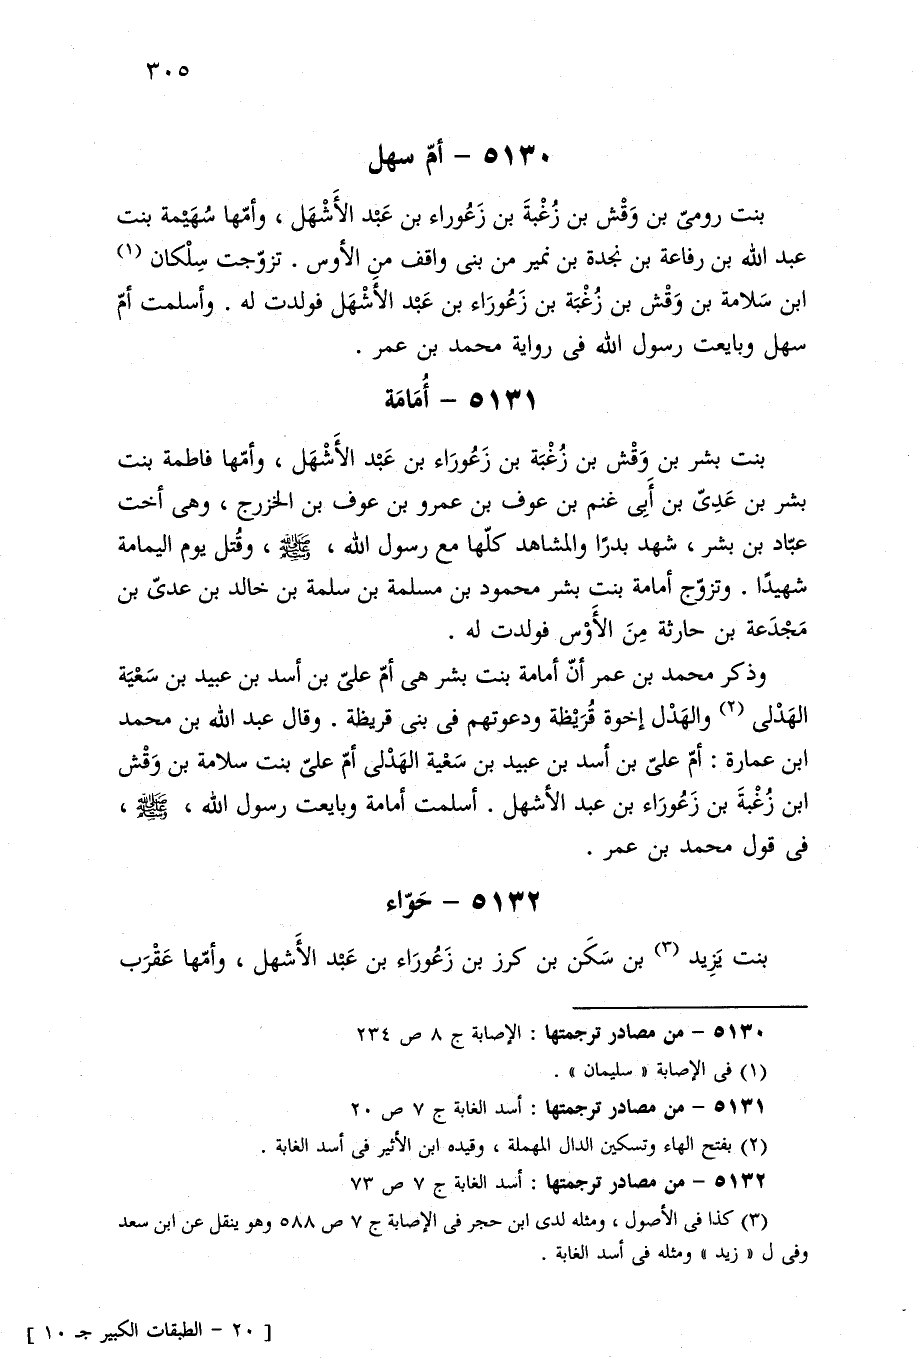 ٣٠٥
٥١٣٠ – أمّ سهل
بنت رومىّ بن وَقْش بن زُغْبةَ بن زَعُوراء بن عَبْد الأَشْهَل ، وأمّها سُهَيْمة بنت
عبد الله بن رفاعة بن نجدة بن نمير من بنى واقف من الأوس . تزوّجت سِلْكان (١)
ابن سَلامة بن وَقْش بن زُغْبَة بن زَعُورَاء بن عَبْد الأَشْهَل فولدت له . وأسلمت أمّ
سهل وبايعت رسول الله فى رواية محمد بن عمر .
٥١٣١ – أُمَامَة
بنت بشر بن وَقْش بن زُغْبَة بن زَعُورَاء بن عَبْد الأَشْهَل ، وأمّها فاطمة بنت
بشر بن عَدِىّ بن أَبِى غنم بن عوف بن عمرو بن عوف بن الخزرج ، وهى أخت
عبّاد بن بشر ، شهد بدرًا والمشاهد كلّها مع رسول الله ، ﷺ ، وقُتل يوم اليمامة
شهيدًا . وتزوّج أمامة بنت بشر محمود بن مسلمة بن سلمة بن خالد بن عدىّ بن
مَجْدَعة بن حارثة مِنَ الأَوْس فولدت له .
وذكر محمد بن عمر أنّ أمامة بنت بشر هى أمّ علىّ بن أسد بن عبيد بن سَعْيَة
الهَدْلى (٢) والهَدْل إخوة قُرَيْظة ودعوتهم فى بنى قريظة . وقال عبد الله بن محمد
ابن عمارة : أمّ علىّ بن أسد بن عبيد بن سَعْية الهَدْلى أمّ علىّ بنت سلامة بن وَقْش
ابن زُغْبةَ بن زَعُورَاء بن عبد الأشهل . أسلمت أمامة وبايعت رسول الله ، ﷺ ،
فى قول محمد بن عمر .
٥١٣٢ – حَوّاء
بنت يَزِيد (٣) بن سَكَن بن كرز بن زَعُورَاء بن عَبْد الأَشهل ، وأمّها عَقْرَب
٥١٣٠ – من مصادر ترجمتها : الإصابة ج ٨ ص ٢٣٤
(١) فى الإصابة « سليمان » .
٥١٣١ – من مصادر ترجمتها : أسد الغابة ج ٧ ص ٢٠
(٢) بفتح الهاء وتسكين الدال المهملة ، وقيده ابن الأثير فى أسد الغابة .
٥١٣٢ – من مصادر ترجمتها : أسد الغابة ج ٧ ص ٧٣
(٣) كذا فى الأصول ، ومثله لدى ابن حجر فى الإصابة ج ٧ ص ٥٨٨ وهو ينقل عن ابن سعد
وفى ل « زيد » ومثله فى أسد الغابة .
[ ٢٠ – الطبقات الكبير جـ ١٠ ]